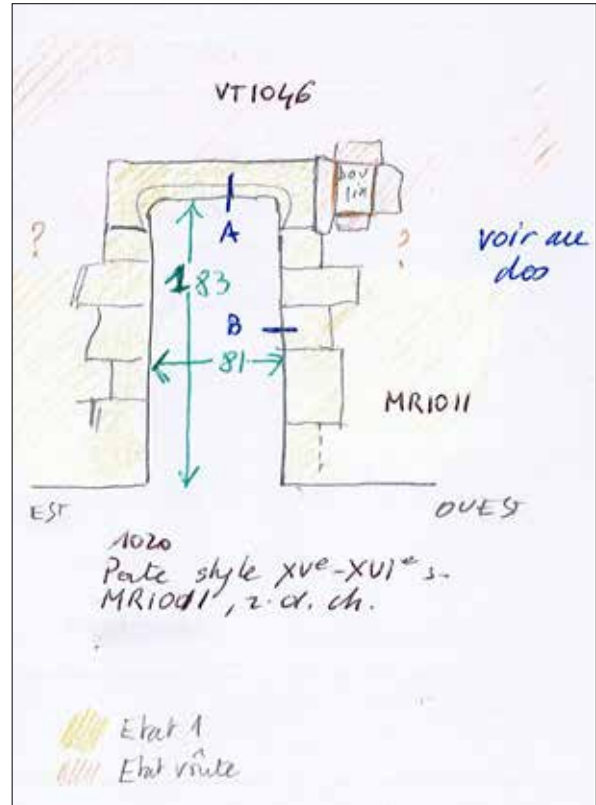 VT1046
bou
lin
?
A
?
voir au
dos
1 83
B
81
MR1011
EST
OUEST
1020
Porte style XVe-XVIe s.
MR1011, r.d.ch.
Etat 1
Etat voûte